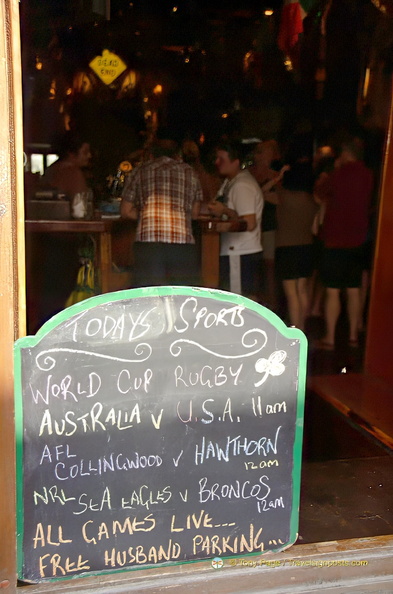 DEAD
END
TODAYS SPORTS
WORLD CUP RUGBY
AUSTRALIA V U.S.A. 11am
AFL
COLLINGWOOD V HAWTHORN
12am
NRL SEA EAGLES V BRONCOS
12am
ALL GAMES LIVE...
FREE HUSBAND PARKING...